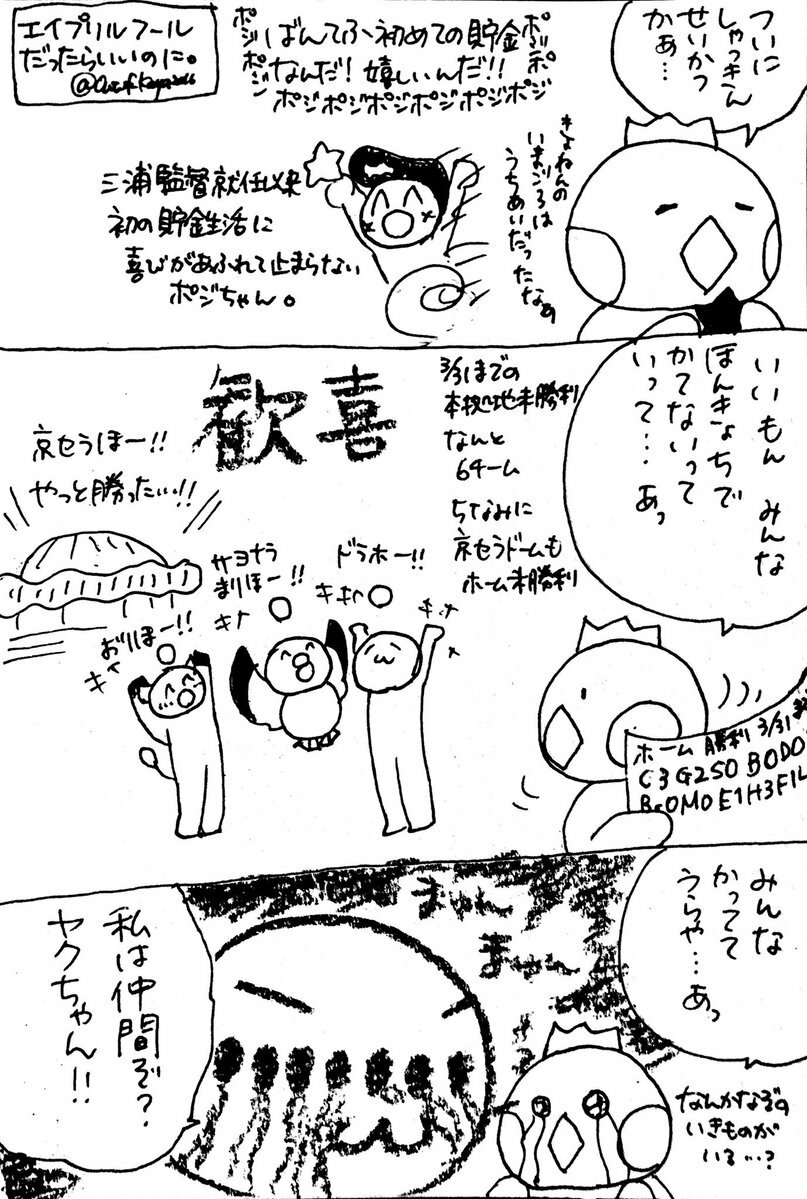 エイプリルフール
だったらいいのに。
ついに
しゃっきん
せいかつ
かぁ…
ポジポジ
ばんてふ初めての貯金
ポジポジ
なんだ!嬉しいんだ!!
ポジポジポジポジポジポジ
きょねんの
いまごろは
うちあいだったなぁ
三浦監督就任以来
初の貯金生活に
喜びがあふれて止まらない
ポジちゃん。
いいもん みんな
ほんきょちで
かてないって
いって…あっ
3/31までの
本拠地未勝利
なんと
6チーム
ちなみに
京セラドームも
ホーム未勝利
歓喜
京セラほー!!
やっと勝ったぃぃ!!
ドラホー!!
サヨナラ
まりほー!!
おりほー!!
キャ
キャ
キャキャ
キャッ
ホーム勝利 3/31まで
C3 G2 S0 B0 D0
Bs0 M0 E1 H3 F1 L
みんな
かってて
うらや…あっ
まゅん
まゅ〜
私は仲間ぞ?
ヤクちゃん!!
なんかなぞの
いきものが
いる…?